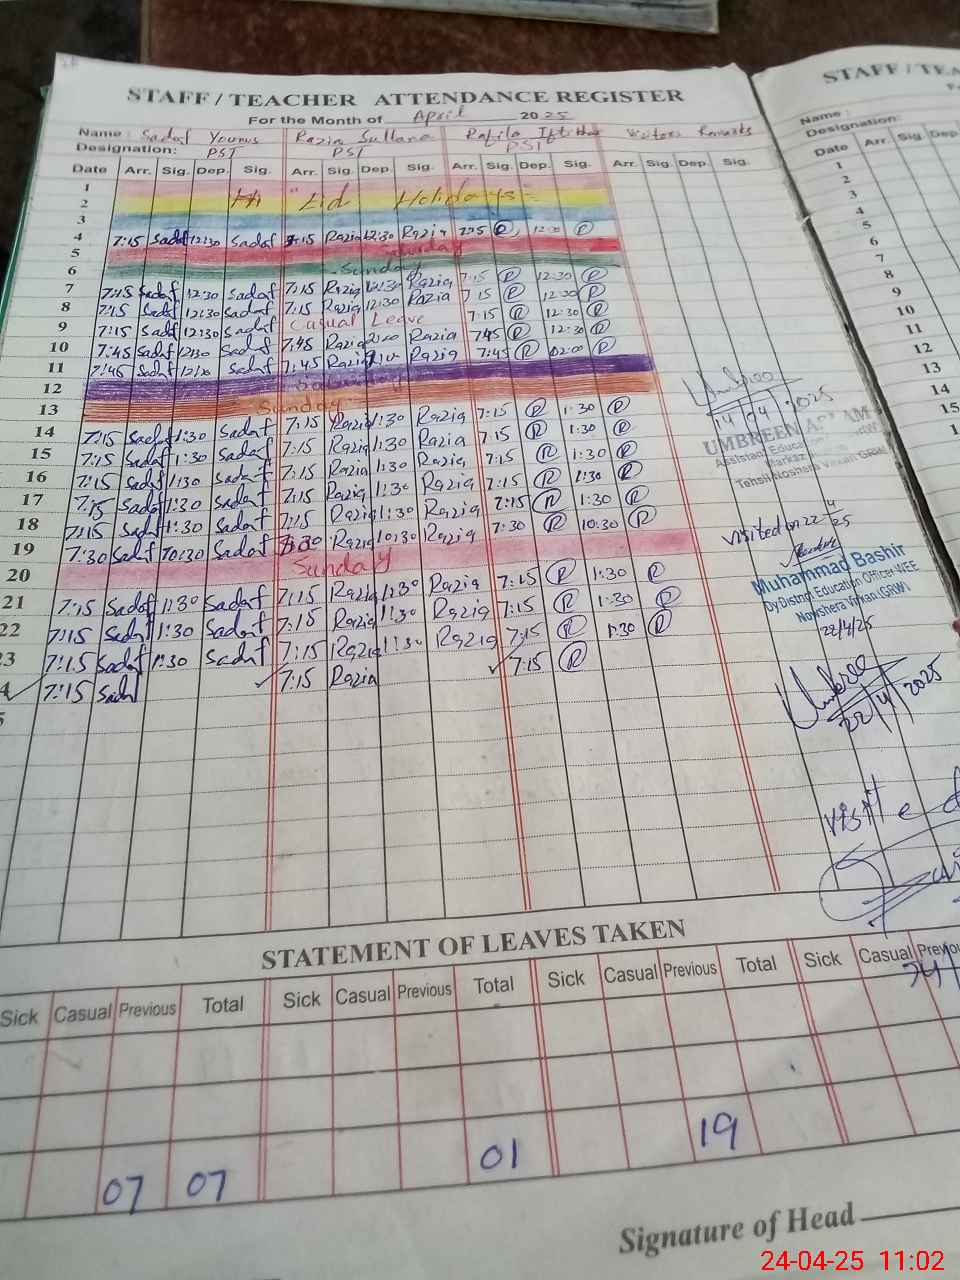 STAFF / TEACHER ATTENDANCE REGISTER
For the Month of April 2025
Name : Sadaf Younus Razia Sultana Visitors Remarks
Designation: PST PST PST
Date Arr. Sig. Dep. Sig. Arr. Sig. Dep. Sig. Arr. Sig. Dep. Sig. Arr. Sig. Dep. Sig.
1
2 Eid Holidays
3
4 7:15 Sadaf 12:30 Sadaf 7:15 Razia 12:30 Razia 7:15 R 12:00 R
5
6 Sunday
7 7:15 Sadaf 12:30 Sadaf 7:15 Razia 12:30 Razia 7:15 R 12:30 R
8 7:15 Sadaf 12:30 Sadaf 7:15 Razia 12:30 Razia 7:15 R 12:30 R
9 7:15 Sadaf 12:30 Sadaf Casual Leave 7:15 R 12:30 R
10 7:45 Sadaf 12:30 Sadaf 7:45 Razia Razia 7:45 R 12:30 R
11 7:45 Sadaf Sadaf 7:45 Razia Razia 7:45 R 12:00 R
12
13 Sunday
14 7:15 Sadaf 1:30 Sadaf 7:15 Razia 1:30 Razia 7:15 R 1:30 R
15 7:15 Sadaf 1:30 Sadaf 7:15 Razia 1:30 Razia 7:15 R 1:30 R
16 7:15 Sadaf 1:30 Sadaf 7:15 Razia 1:30 Razia 7:15 R 1:30 R
17 7:15 Sadaf 1:30 Sadaf 7:15 Razia 1:30 Razia 7:15 R 1:30 R
18 7:15 Sadaf 1:30 Sadaf 7:15 Razia 1:30 Razia 7:15 R 1:30 R
19 7:30 Sadaf 10:30 Sadaf Razia 10:30 Razia 7:30 R 10:30 R
20 Sunday
21 7:15 Sadaf 1:30 Sadaf 7:15 Razia 1:30 Razia 7:15 R 1:30 R
22 7:15 Sadaf 1:30 Sadaf 7:15 Razia 1:30 Razia 7:15 R 1:30 R
23 7:15 Sadaf 1:30 Sadaf 7:15 Razia 1:30 Razia 7:15 R 1:30 R
4 7:15 Sadaf 7:15 Razia 7:15 R
5
14/04/2025
UMBREEN
Assistant Education
Markaz
Tehsil Noshera Virkan GRW
visited on 22/4/25
Muhammad Bashir
Dy District Education Officer WEE
Nowshera Virkan (GRW)
22/4/25
Umbree
22/4/2025
visited
STATEMENT OF LEAVES TAKEN
Sick Casual Previous Total Sick Casual Previous Total Sick Casual Previous Total Sick Casual Previo
07 07 01 19
Signature of Head
STAFF / TEA
Name :
Designation:
Date Arr. Sig. Dep
1
2
3
4
5
6
7
8
9
10
11
12
13
14
15
24-04-25 11:02